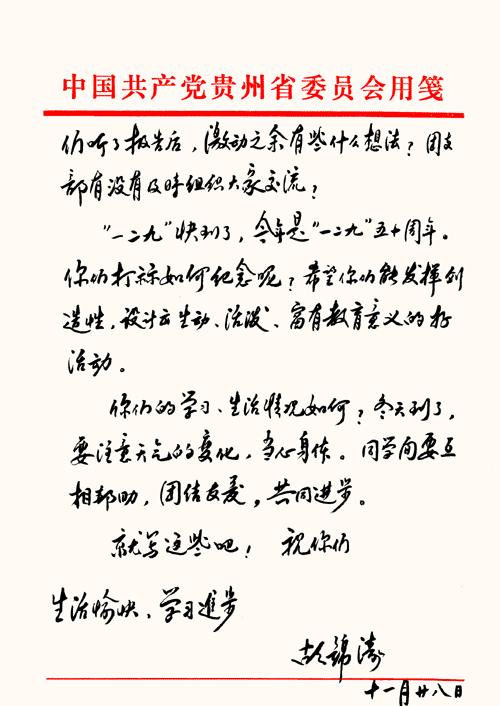 中国共产党贵州省委员会用笺
们听了报告后，激动之余有些什么想法？团支
部有没有及时组织大家交流？
“一二九”快到了，今年是“一二九”五十周年。
你们打祘如何纪念呢？希望你们能发挥创
造性，设计出生动、活泼、富有教育意义的好
活动。
你们的学习、生活情况如何？冬天到了，
要注意天气的变化，当心身体。同学间要互
相帮助，团结友爱，共同进步。
就写这些吧！ 祝你们
生活愉快、学习進步
胡錦涛
十一月廿八日